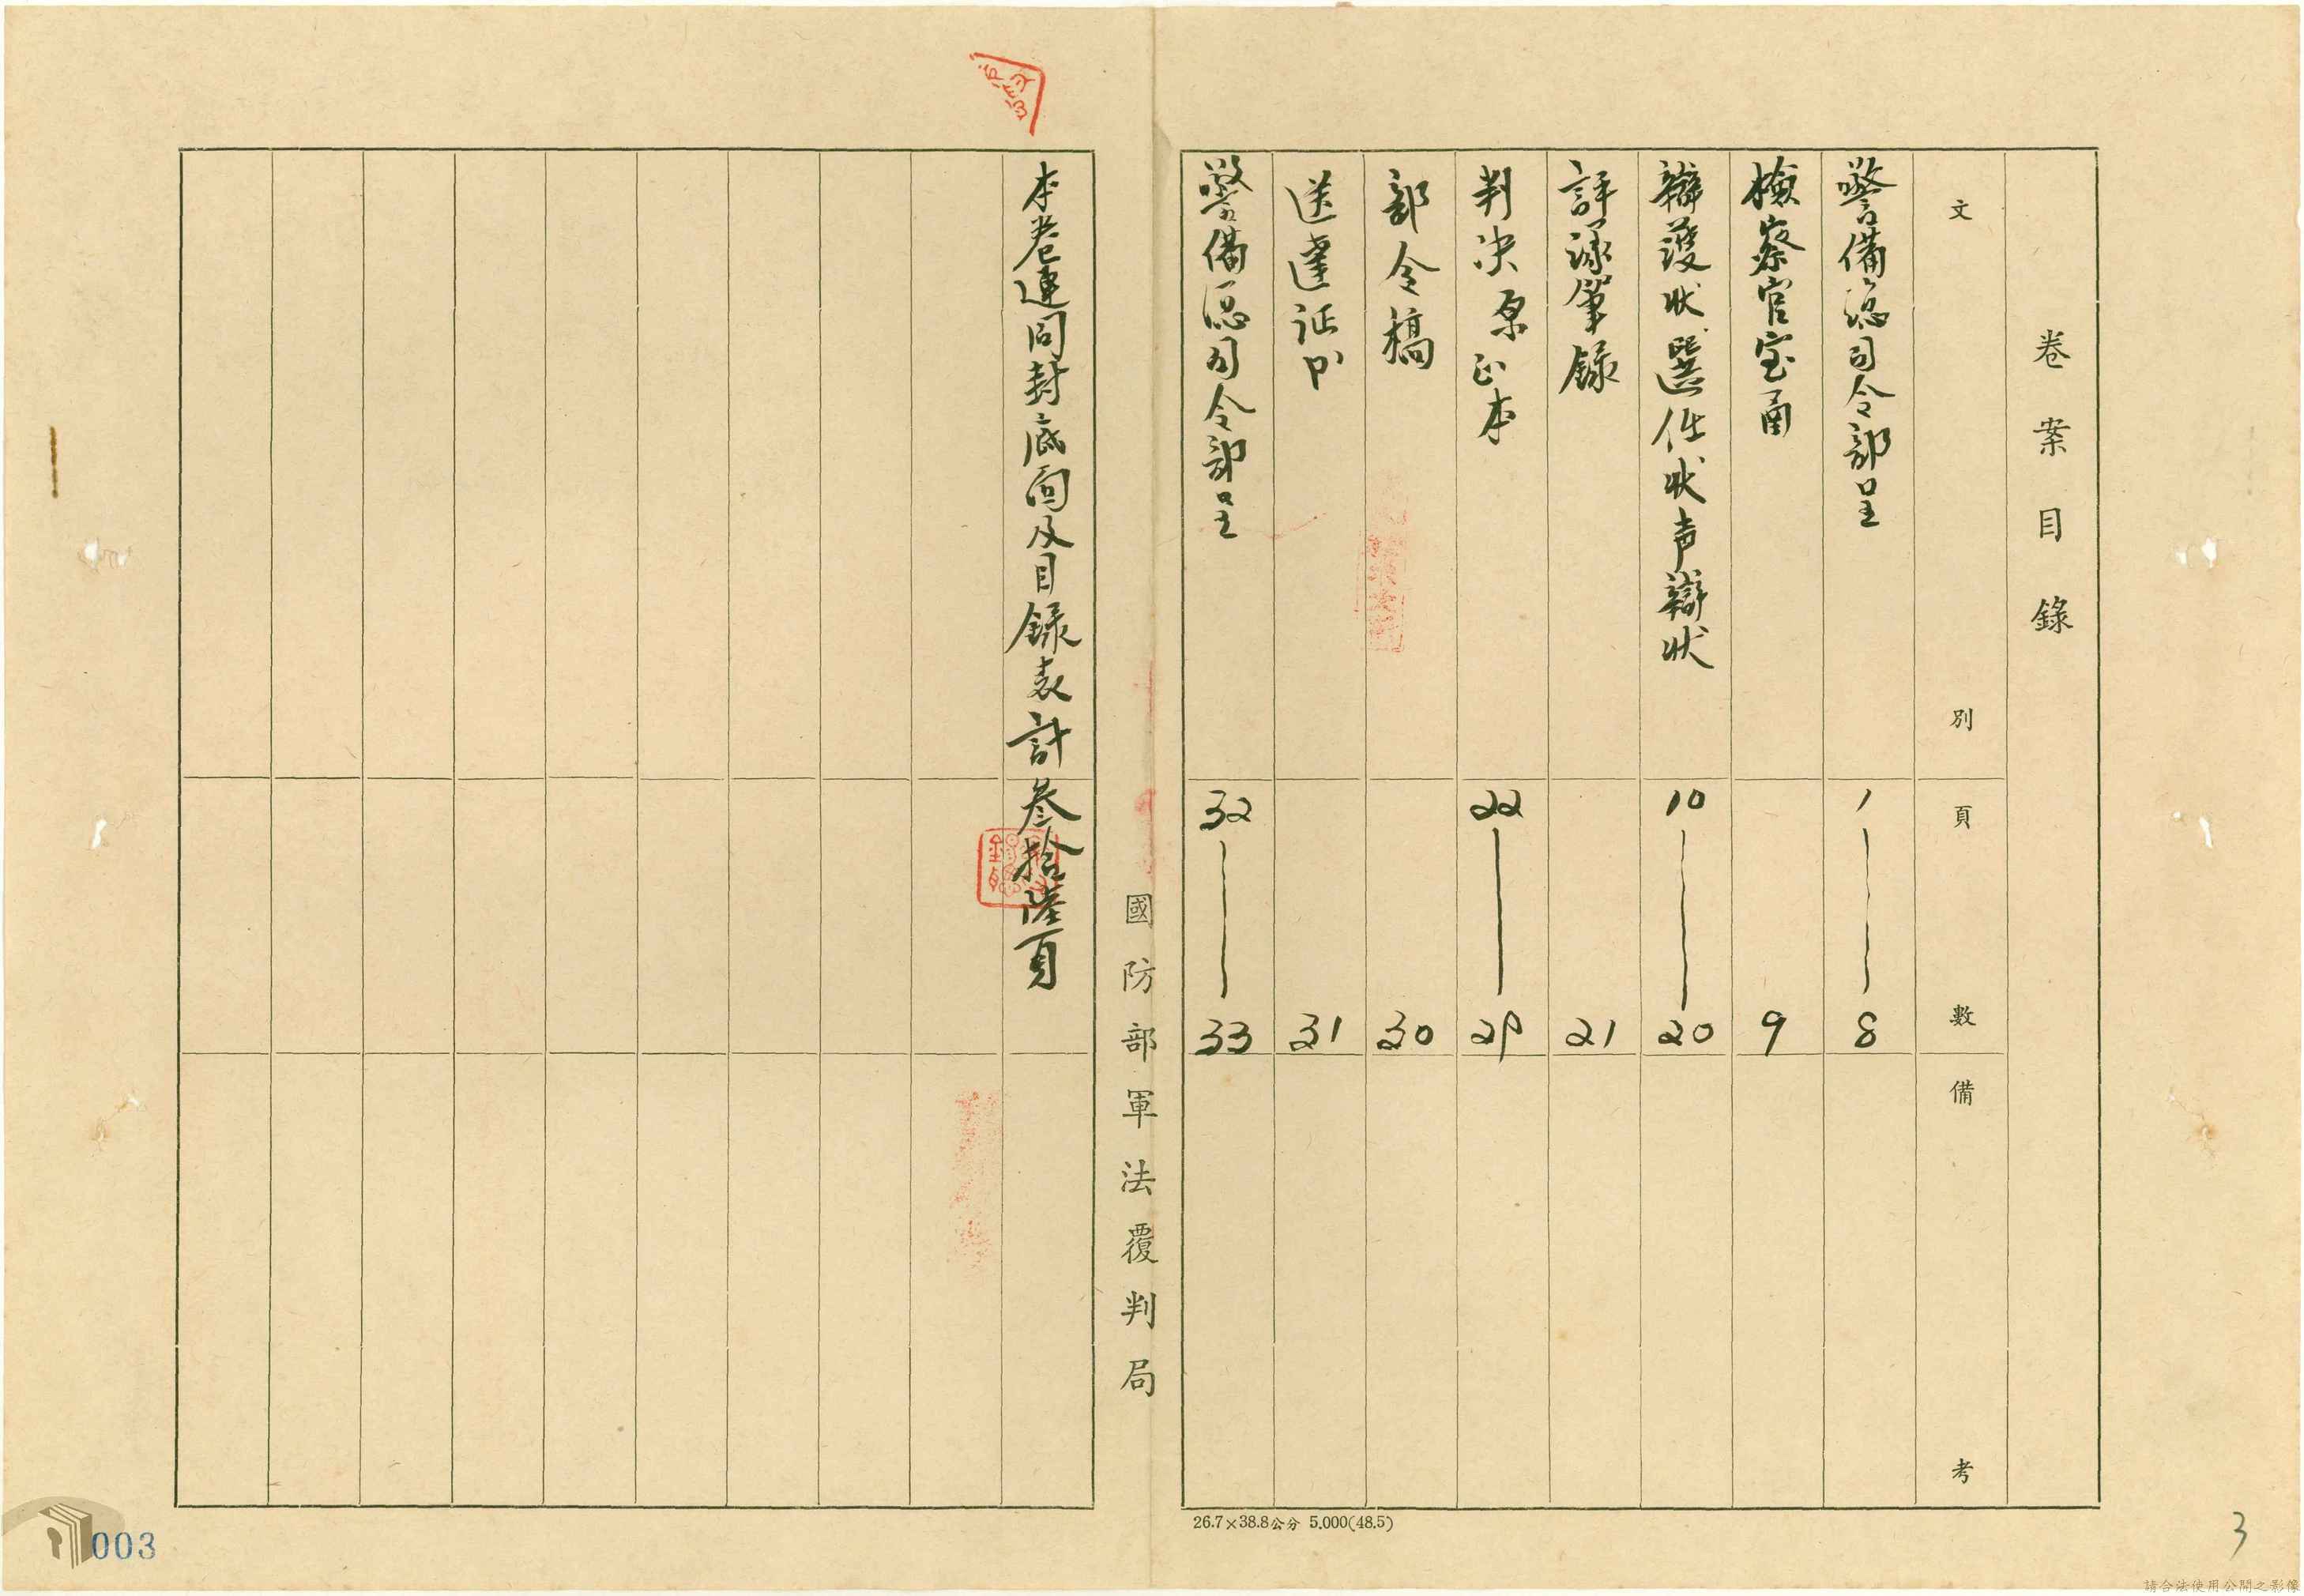 卷案目錄
文別 頁數 備考
警備總司令部呈 1—8
檢察官室函 9
辯護狀選任狀声辯狀 10—20
評議筆錄 21
判決原正本 22—29
部令稿 30
送達証书 31
警備總司令部呈 32—33
26.7×38.8公分 5.000(48.5)
國防部軍法覆判局
本卷連同封底面及目錄表計叁拾陸頁
003
3
請合法使用公開之影像